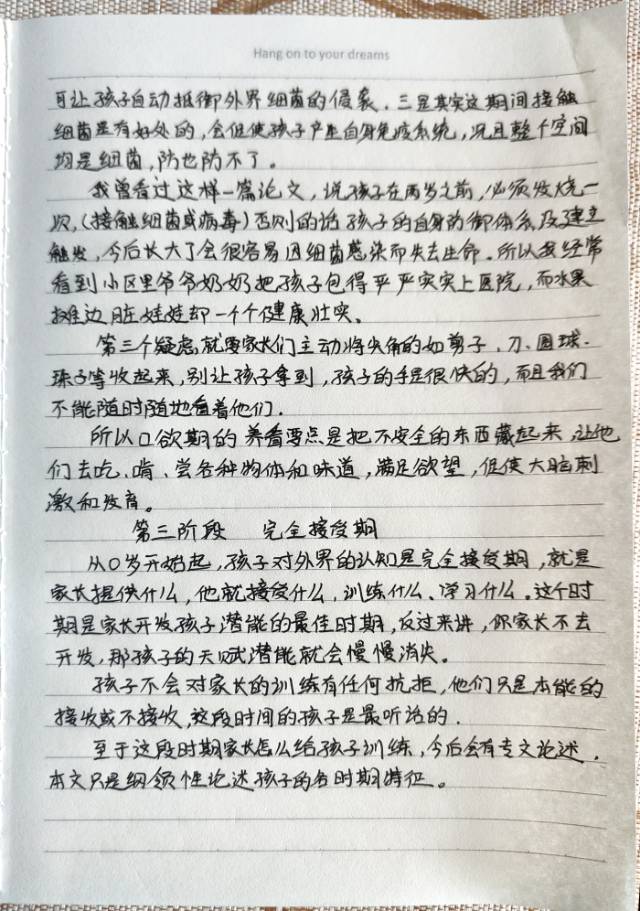 Hang on to your dreams
可让孩子自动抵御外界细菌的侵袭。三是其实这期间接触
细菌是有好处的,会促使孩子产生自身免疫系统,况且整个空间
均是细菌,防也防不了。
我曾看过这样一篇论文,说孩子在两岁之前,必须发烧一
次,(接触细菌或病毒)否则的话孩子的自身防御体系没建立
触发,今后长大了会很容易因细菌感染而失去生命。所以我经常
看到小区里爷爷奶奶把孩子包得严严实实上医院,而水果
摊边脏娃娃却一个个健康壮实。
第三个疑虑,就要家长们主动将尖角的如剪子、刀、圆球、
珠子等收起来,别让孩子拿到,孩子的手是很快的,而且我们
不能随时随地看着他们.
所以口欲期的养育要点是把不安全的东西藏起来,让他
们去吃、啃、尝各种物体和味道,满足欲望,促使大脑刺
激和发育。
第三阶段 完全接受期
从0岁开始起,孩子对外界的认知是完全接受期,就是
家长提供什么,他就接受什么,训练什么、学习什么。这个时
期是家长开发孩子潜能的最佳时期,反过来讲,你家长不去
开发,那孩子的天赋潜能就会慢慢消失。
孩子不会对家长的训练有任何抗拒,他们只是本能的
接收或不接收,这段时间的孩子是最听话的.
至于这段时期家长怎么给孩子训练,今后会有专文论述,
本文只是纲领性论述孩子的各时期特征。